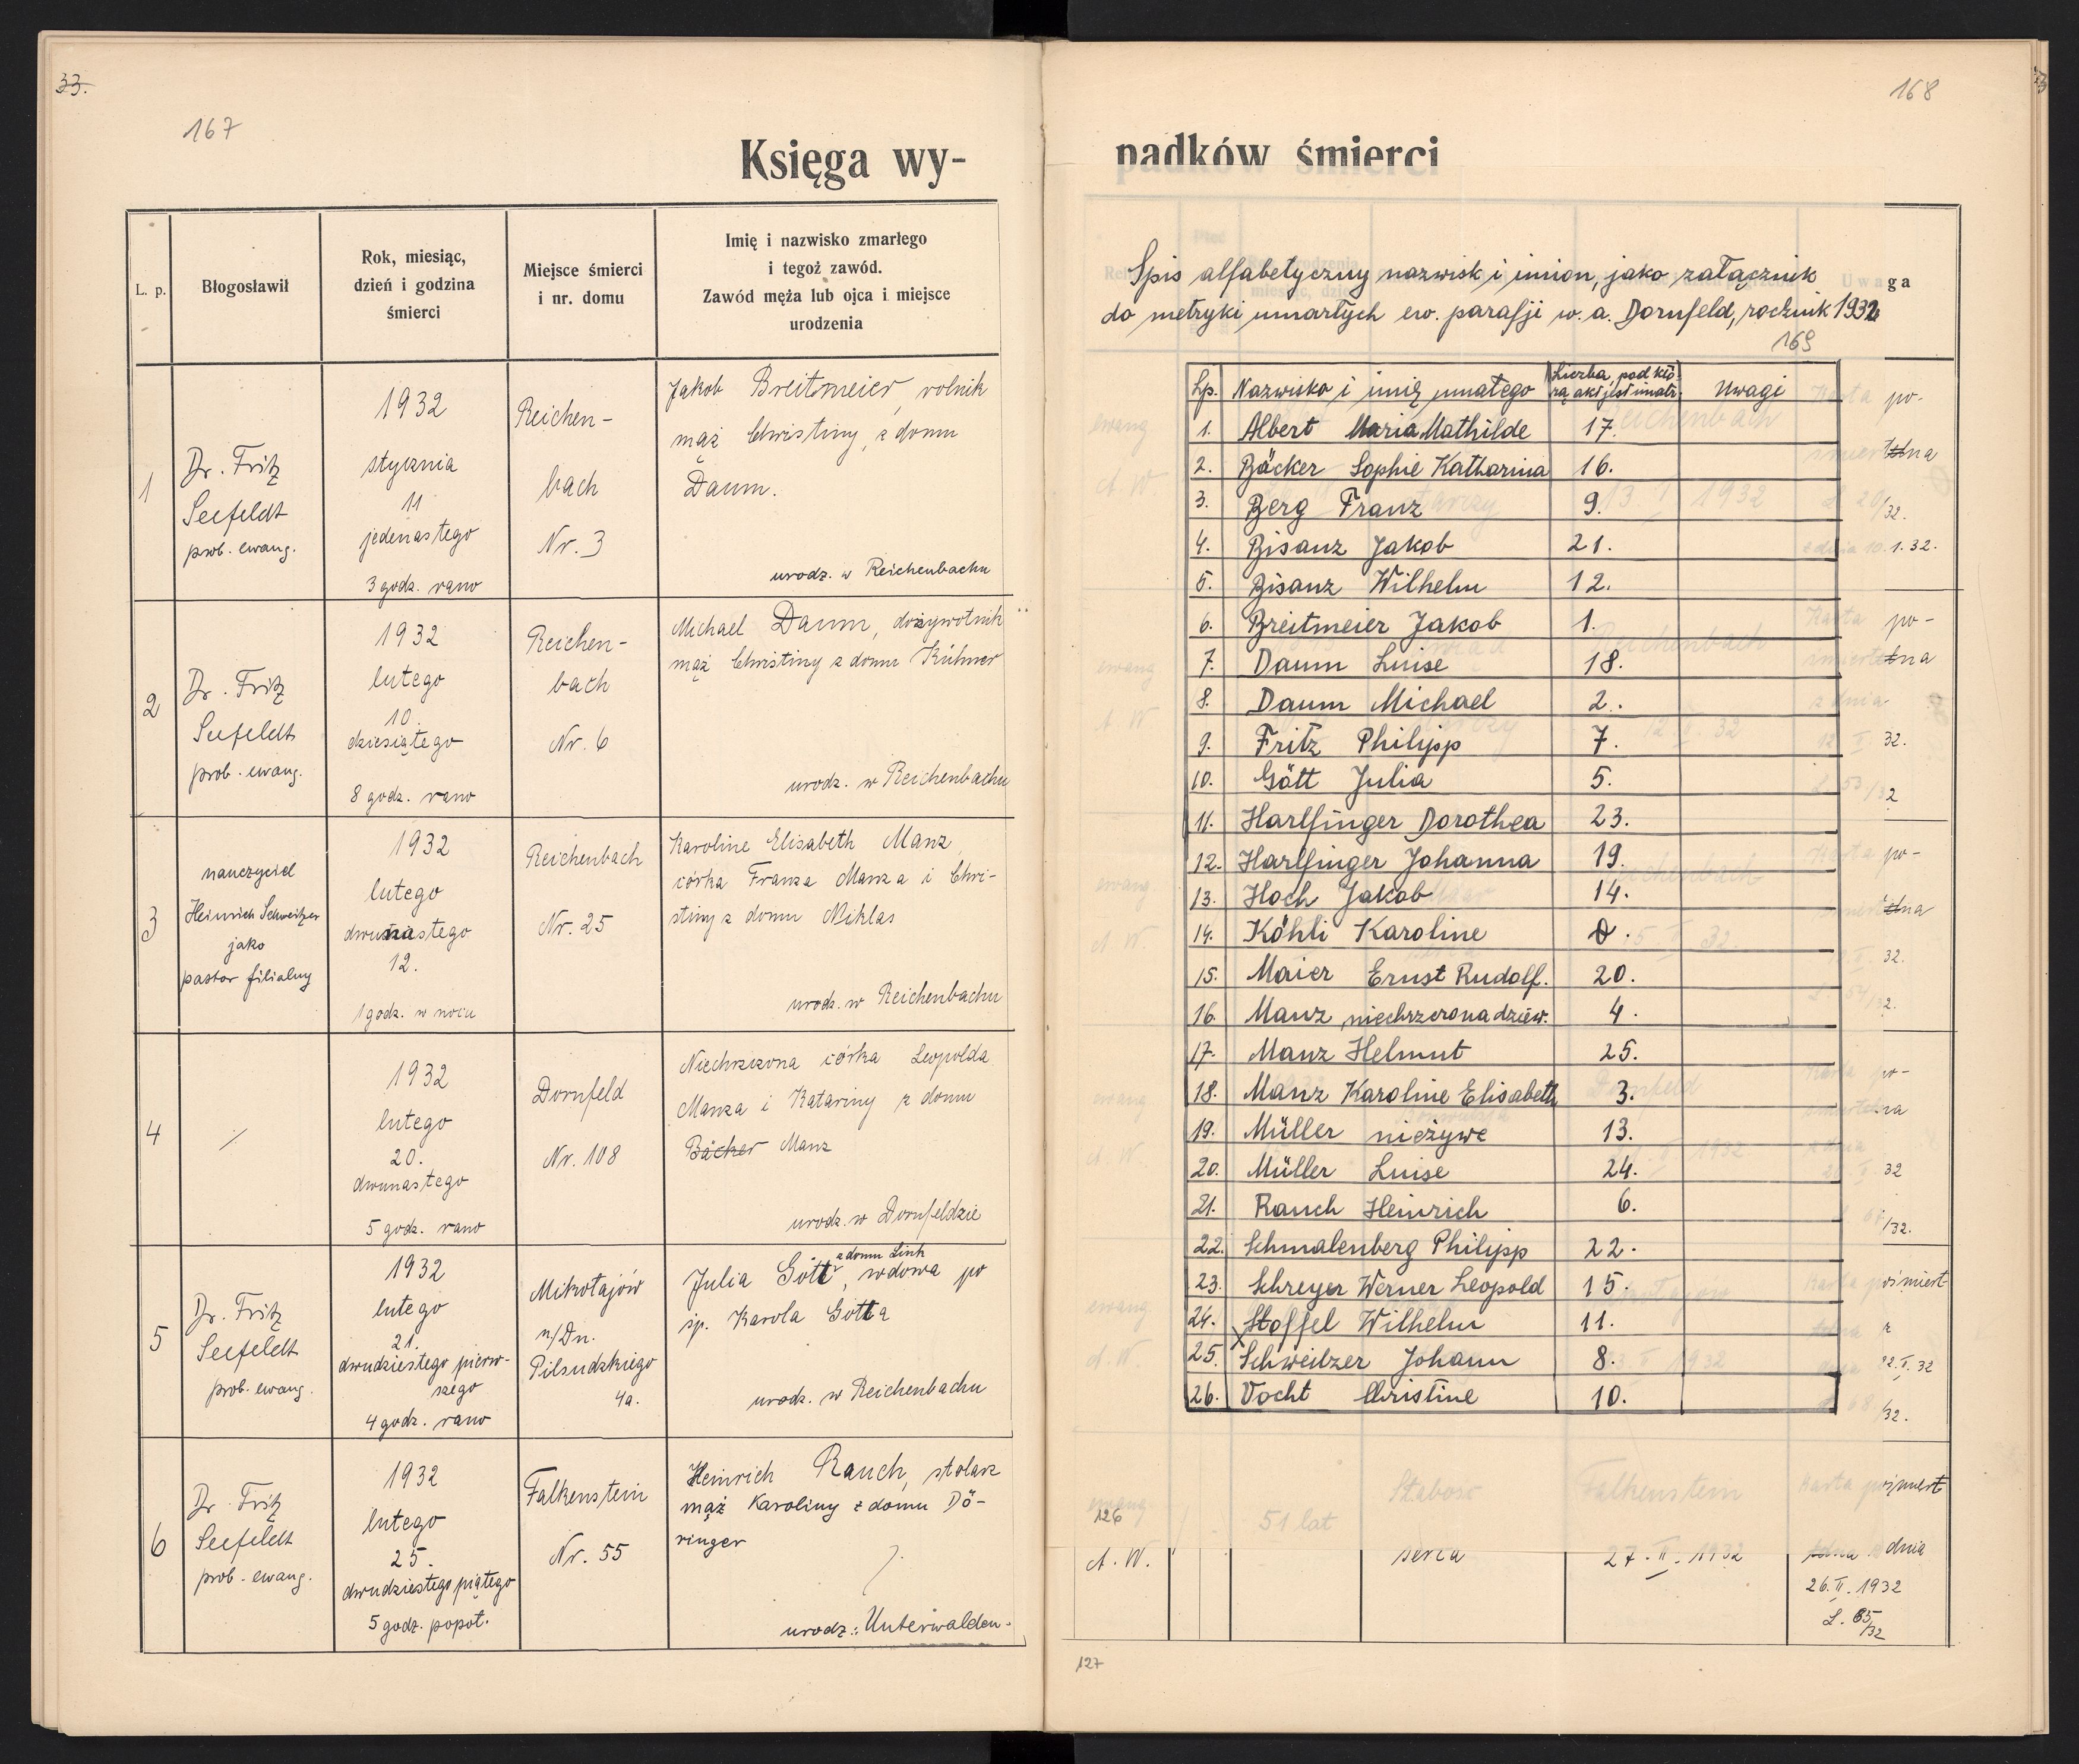 33.
167
Księga wy-
L. p.
Błogosławił
Rok, miesiąc,
dzień i godzina
śmierci
Miejsce śmierci
i nr. domu
Imię i nazwisko zmarłego
i tegoż zawód.
Zawód męża lub ojca i miejsce
urodzenia
1
Dr. Fritz
Seefeldt
prob. ewang.
1932
stycznia
11
jedenastego
3 godz. rano
Reichen-
bach
Nr. 3
Jakob Breitmeier, rolnik
mąż Christiny, z domu
Daum.
urodz. w Reichenbachu
2
Dr. Fritz
Seefeldt
prob. ewang.
1932
lutego
10.
dziesiątego
8 godz. rano
Reichen-
bach
Nr. 6
Michael Daum, dożywotnik
mąż Christiny z domu Kühner
urodz. w Reichenbachu
3
nauczyciel
Heinrich Schweitzer
jako
pastor filialny
1932
lutego
dwunastego
12.
1 godz. w nocy
Reichenbach
Nr. 25
Karoline Elisabeth Manz
córka Franza Manza i Chri-
stiny z domu Miklas
urodz. w Reichenbachu
4
/
1932
lutego
20.
dwunastego
5 godz. rano
Dornfeld
Nr. 108
Niechrzczona córka Leopolda
Manza i Katariny z domu
Bäcker Manz
urodz. w Dornfeldzie
5
Dr. Fritz
Seefeldt
prob. ewang.
1932
lutego
21.
dwudziestego pierw-
szego
4 godz. rano
Mikołajów
n/Dn.
Piłsudzkiego
4a.
z domu Link
Julia Gött, wdowa po
śp. Karola Götta
urodz. w Reichenbachu
6
Dr. Fritz
Seefeldt
prob. ewang.
1932
lutego
25.
dwudziestego piątego
5 godz. popoł.
Falkenstein
Nr. 55
Heinrich Rauch, stolarz
mąż Karoliny z domu Dö-
ringer
urodz.: Unterwalden.
168
padków śmierci
Uwaga
Spis alfabetyczny nazwisk i imion, jako załącznik
do metryki umarłych ew. parafji w. a. Dornfeld, rocznik 1932
169
Lp. Nazwisko i imię umałego Liczba, pod któ- Uwagi
rą akt jest imatr.
1. Albert Maria Mathilde 17.
2. Bäcker Sophie Katharina 16.
3. Berg Franz 9.
4. Bisanz Jakob 21.
5. Bisanz Wilhelm 12.
6. Breitmeier Jakob 1.
7. Daum Luise 18.
8. Daum Michael 2.
9. Fritz Philipp 7.
10. Gött Julia 5.
11. Harlfinger Dorothea 23.
12. Harlfinger Johanna 19.
13. Hoch Jakob 14.
14. Köhli Karoline
15. Maier Ernst Rudolf. 20.
16. Manz niechrzczona dziew. 4.
17. Manz Helmut 25.
18. Manz Karoline Elisabeth 3.
19. Müller nieżywe 13.
20. Müller Luise 24.
21. Rauch Heinrich 6.
22. Schmalenberg Philipp 22.
23. Schreyer Werner Leopold 15.
24. Stoffel Wilhelm 11.
25. Schweitzer Johann 8.
26. Vocht Christine 10.
ewang.
126
A. W.
51 lat
Słabość
serca
Falkenstein
27. II. 1932
Karta pośmiert
telna z dnia
26. II. 1932
L. 65/32
127